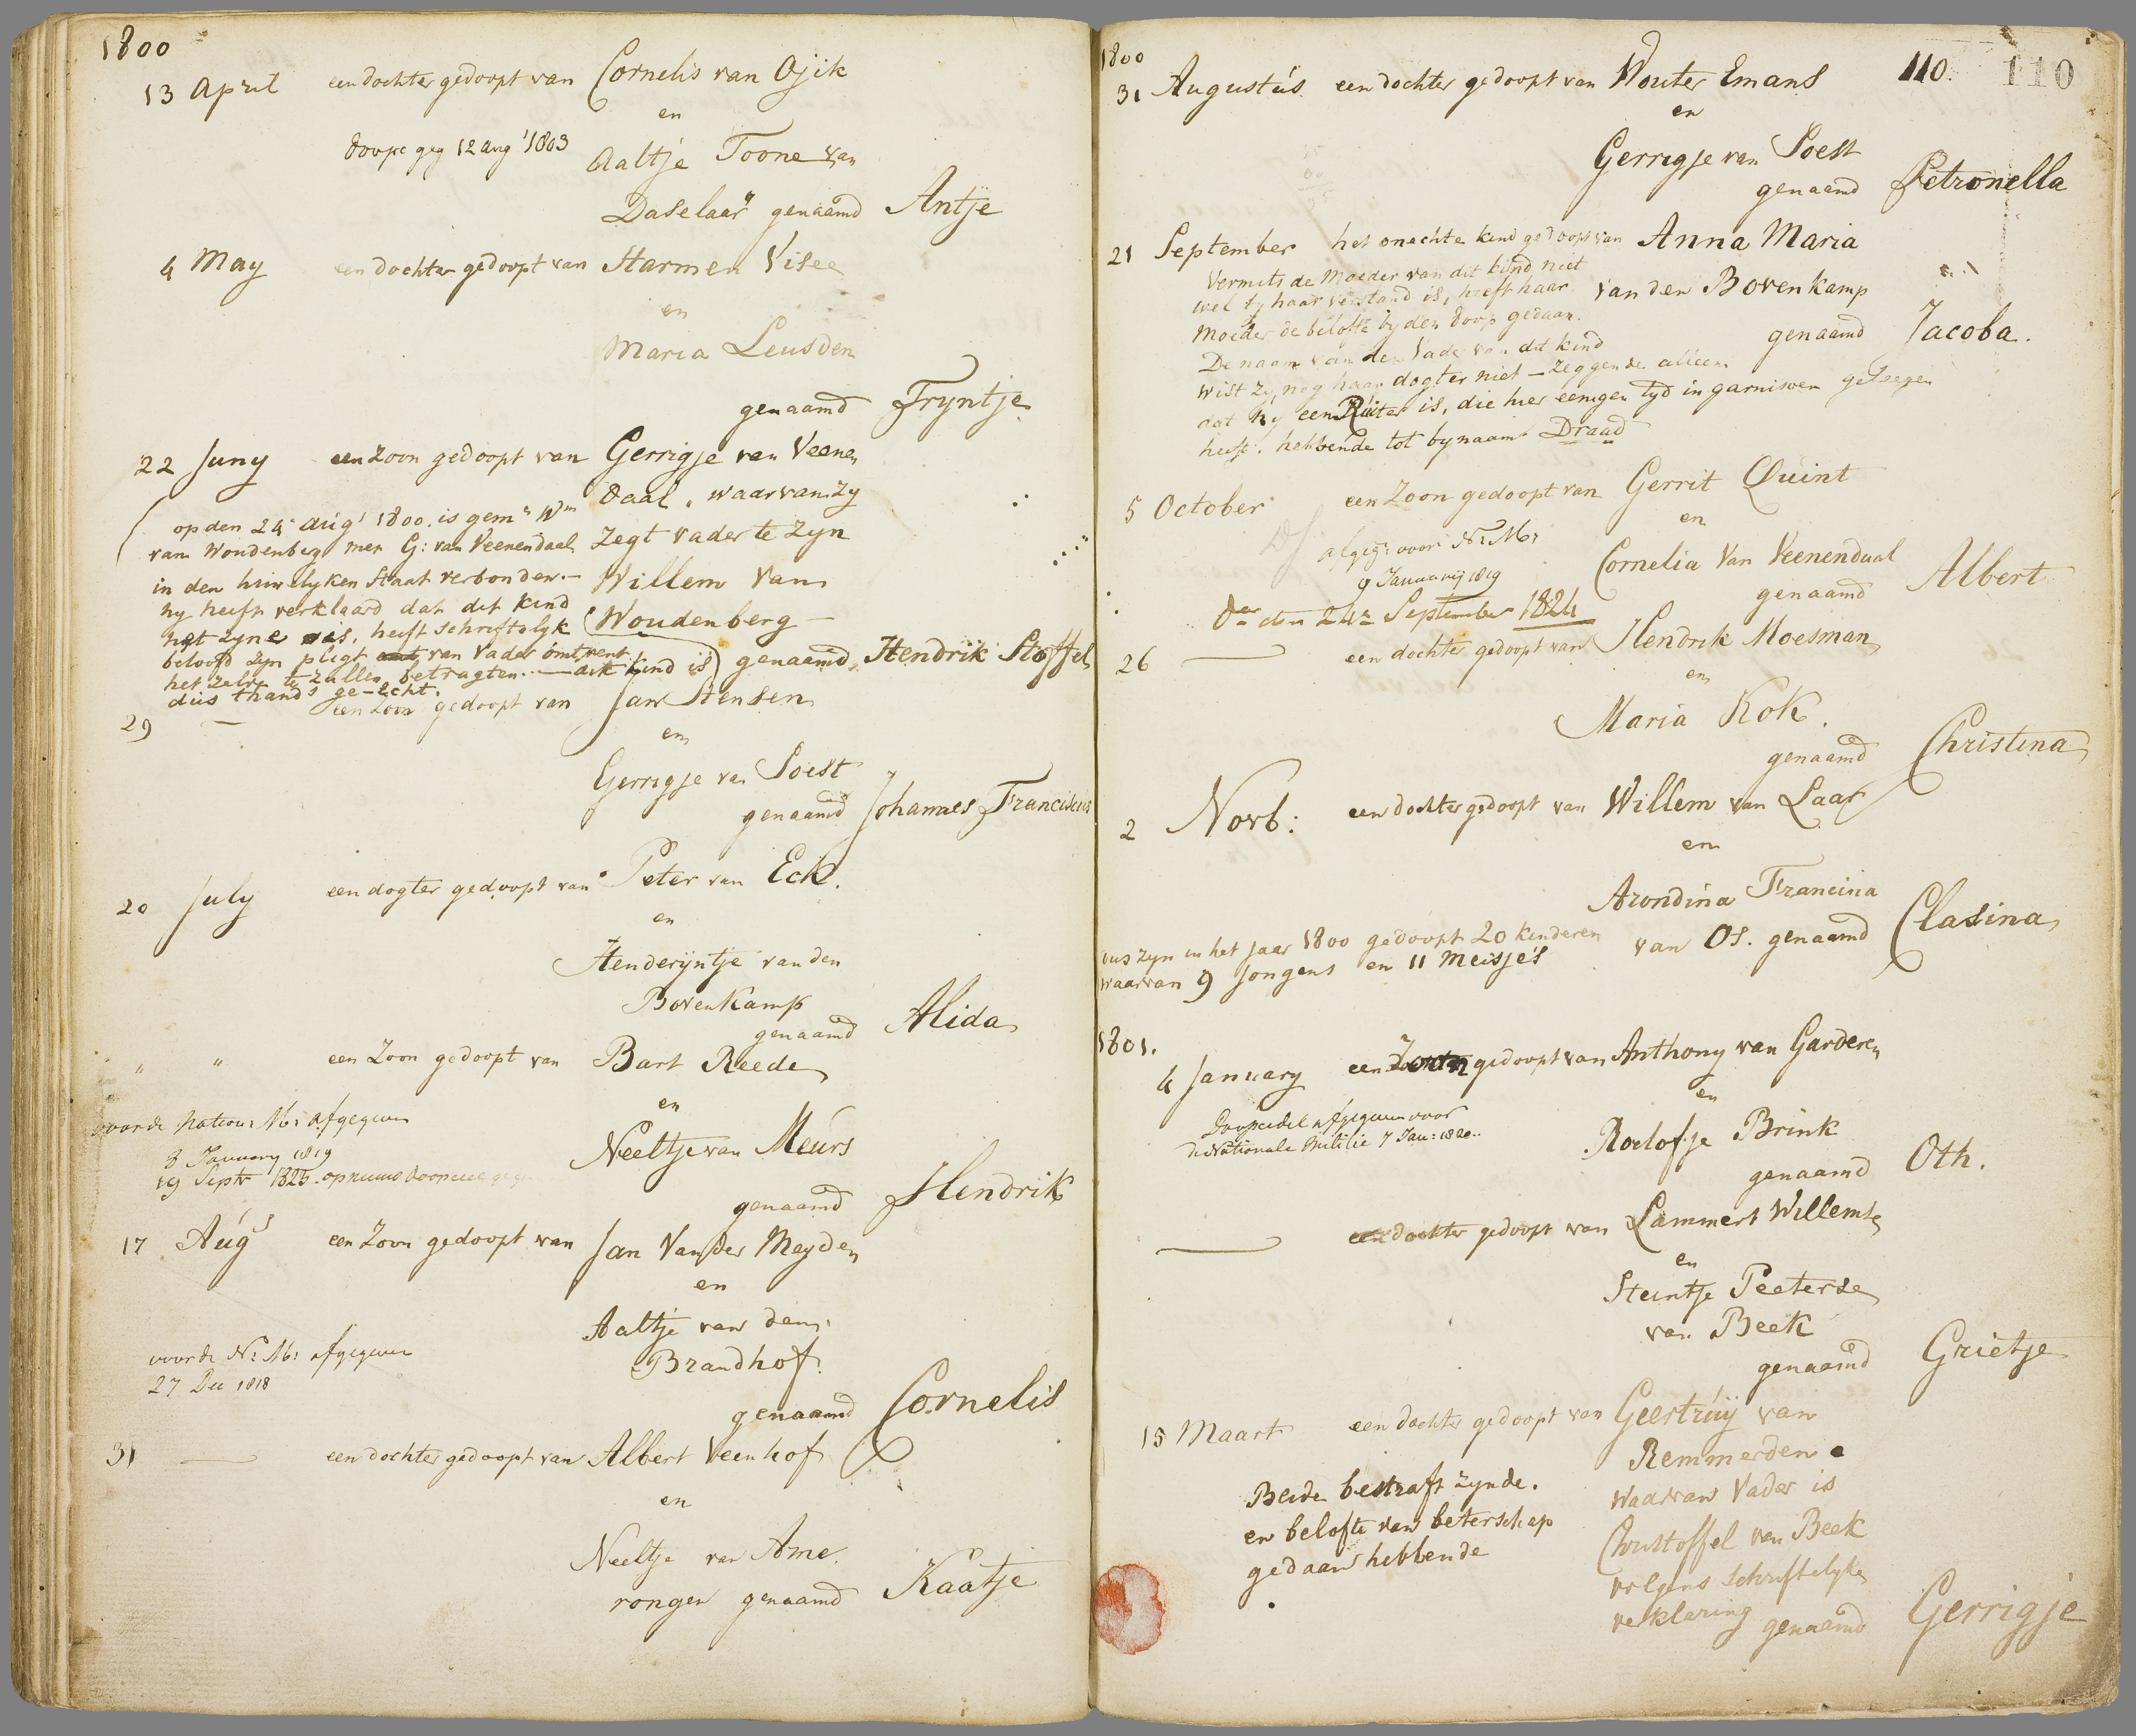 1800
13 April een dochter gedoopt van Cornelis van Ojik
en
doopc geg 12 aug 1803 Aaltje Toone van
Daselaar genaamd Antje
4 May een dochter gedoopt van Harmen Visee
en
Maria Leusden
genaamd Tryntje
22 Juny een zoon gedoopt van Gerrigje van Veenen
daal, waarvan zy
zegt vader te zyn
Willem van
Woudenberg
genaamd Hendrik Stoffel
op den 24 Aug 1800 is gem. Wm
van Woudenberg met G: van Veenendaal
in den huwelyken Staat verbonden.—
hy heeft verklaard dat dit kind
het zyne is, heeft schriftelyk
beloofd zyn pligt van vader omtrent
het zelve te zullen betragten.— dit kind is
dus thands ge-echt.
29 — een zoon gedoopt van Jan Hensen
en
Gerrigje van Soest
genaamd Johannes Franciscus
20 July een dogter gedoopt van Peter van Eck.
en
Henderijntje van den
Bovenkamp
genaamd Alida
" " een zoon gedoopt van Bart Reede
en
voor de Nation: M: afgegeven
8 January 1819
19 Septr 1825. opnieuw doopceel
Neeltje van Meurs
genaamd Hendrik
17 Augs een zoon gedoopt van Jan Van der Meyden
en
Aaltje van den
Brandhof.
voor de N: M: afgegeven
27 Dec 1818
genaamd Cornelis
31 — een dochter gedoopt van Albert Veenhof
en
Neeltje van Ame
rongen genaamd Kaatje
1800
31 Augustus een dochter gedoopt van Wouter Emans 110. 110
en
Gerrigje van Soest
genaamd Petronella
21 September het onechte kind gedoopt van Anna Maria
van den Bovenkamp
genaamd Jacoba.
Vermits de Moeder van dit kind niet
wel by haar verstand is, heeft haar
Moeder de belofte by den doop gedaan.
De naam van den Vader van dit kind
wist zy nog haar dogter niet — zeggende alleen
dat hy een Ruiter is, die hier eenigen tyd in garnisoen gelegen
heeft. hebbende tot bynaam Draad
5 October een zoon gedoopt van Gerrit Quint
en
afgeg: voor N: M:
9 Januarij 1819
Cornelia Van Veenendaal
genaamd Albert
den 24 September 1824
26 — een dochter gedoopt van Hendrik Moesman
en
Maria Kok.
genaamd Christina
2 Novb: een dochter gedoopt van Willem van Laar
en
Arondina Francina
van Os. genaamd Clasina
dus zyn in het Jaar 1800 gedoopt 20 kinderen
waarvan 9 Jongens en 11 Meisjes
1801.
4 January een Zoon gedoopt van Anthony van Garderen
en
Doopcedel afgegeven voor
de Nationale Militie 7 Jan: 1820.
Roelofje Brink
genaamd Oth.
— een dochter gedoopt van Lammert Willemse
en
Steintje Peeterse
van Beek
genaamd Grietje
15 Maart een dochter gedoopt van Geertruy van
Remmerden
waarvan Vader is
Christoffel van Beek
volgens schriftelyke
verklaring genaamd Gerrigje
Beide bestraft zynde.
en belofte van beterschap
gedaan hebbende